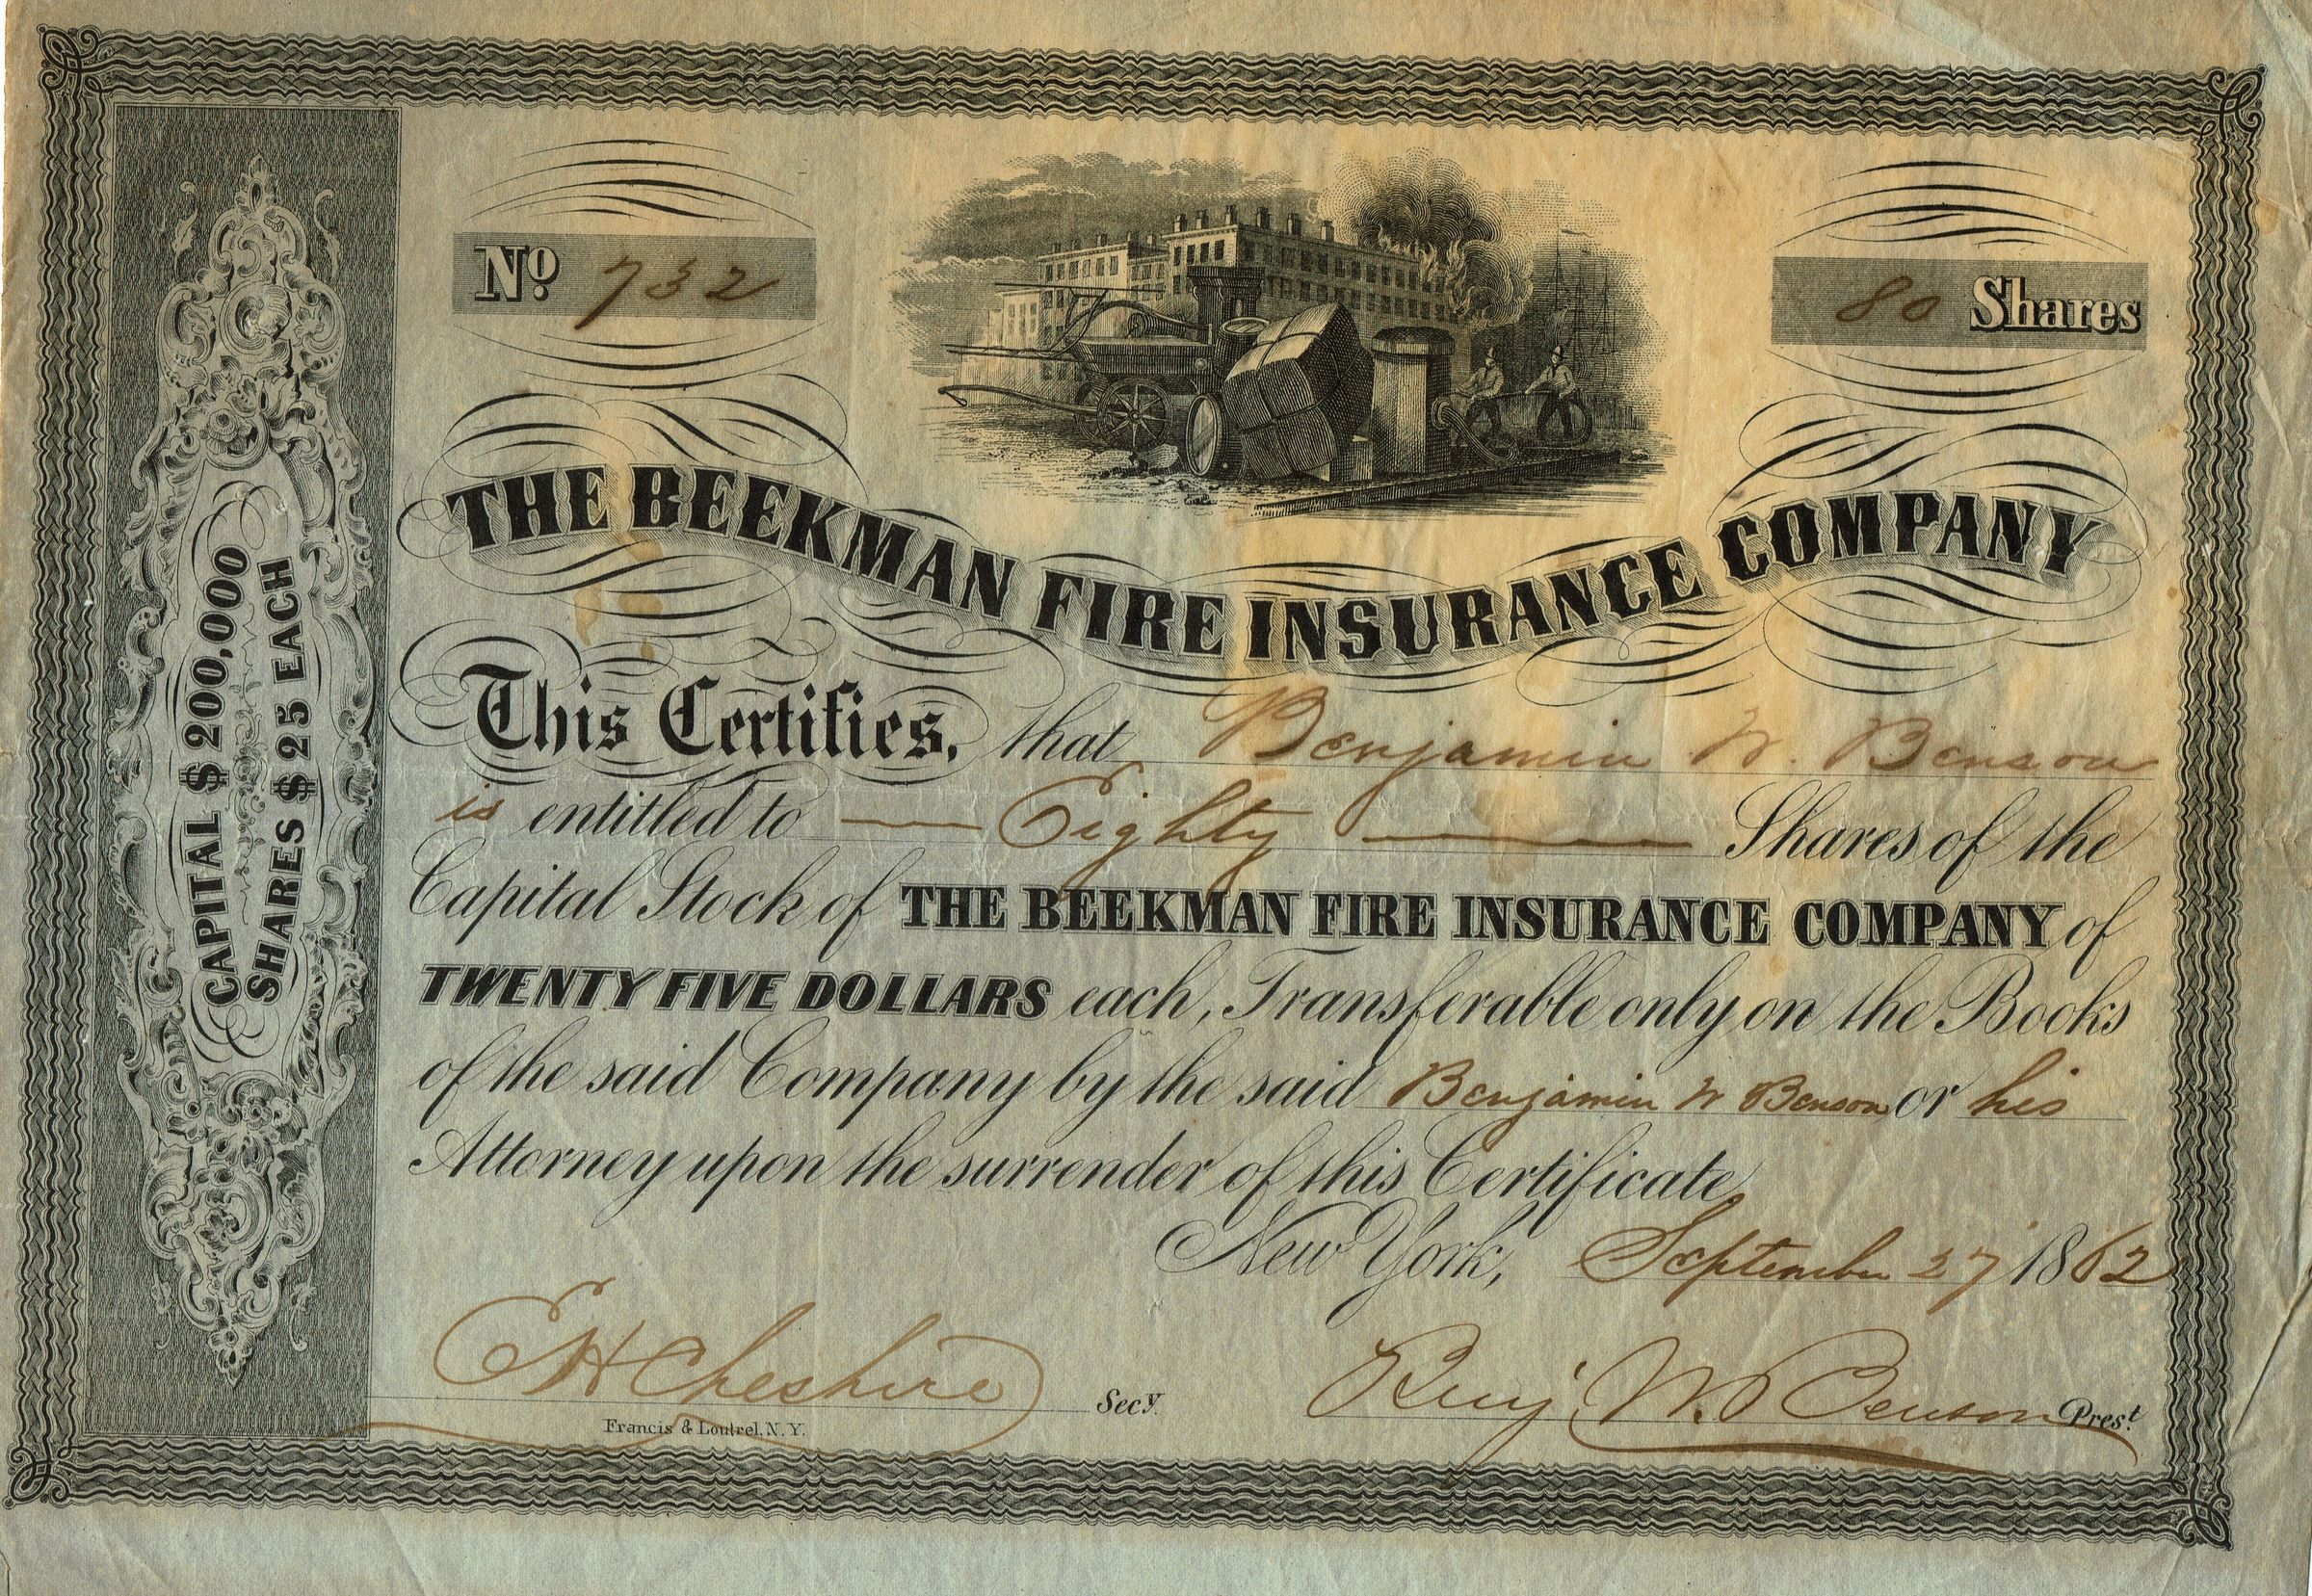 No. 732
80 Shares
THE BEEKMAN FIRE INSURANCE COMPANY
CAPITAL $200,000
SHARES $25 EACH
This Certifies, that Benjamin W. Benson
is entitled to Eighty Shares of the
Capital Stock of THE BEEKMAN FIRE INSURANCE COMPANY of
TWENTY FIVE DOLLARS each, Transferable only on the Books
of the said Company by the said Benjamin W Benson or his
Attorney upon the surrender of this Certificate
New York, September 27 1862
E H Cheshire Secy.
Benj W. Benson Prest.
Francis & Loutrel, N.Y.